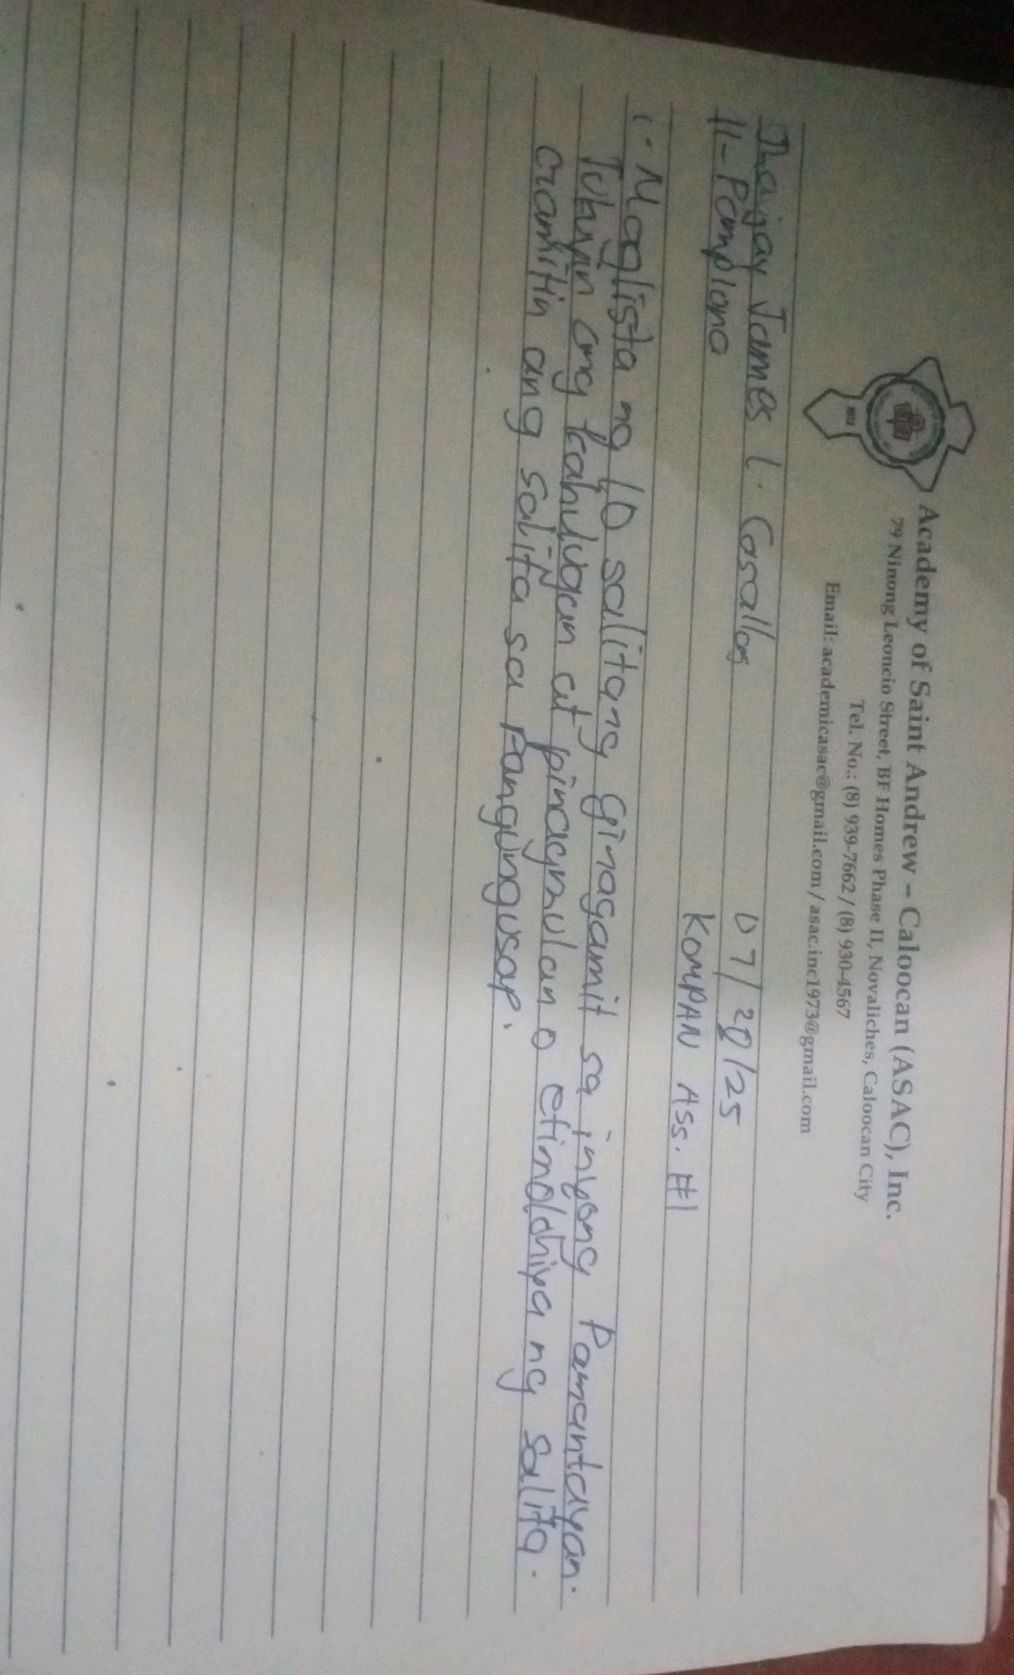 Academy of Saint Andrew – Caloocan (ASAC), Inc.
79 Ninong Leoncio Street, BF Homes Phase II, Novaliches, Caloocan City
Tel. No.: (8) 939-7662 / (8) 930-4567
Email: academicasac@gmail.com / asac.inc1973@gmail.com
James L. Casallos 07/20/25
11-Pamplona KOMPAN Ass. #1
1. Maglista ng 10 salitang ginagamit sa inyong Pamantayan.
Tukuyin ang kahulugan at pinagmulan o etimolohiya ng salita.
Gamitin ang salita sa Pangungusap.